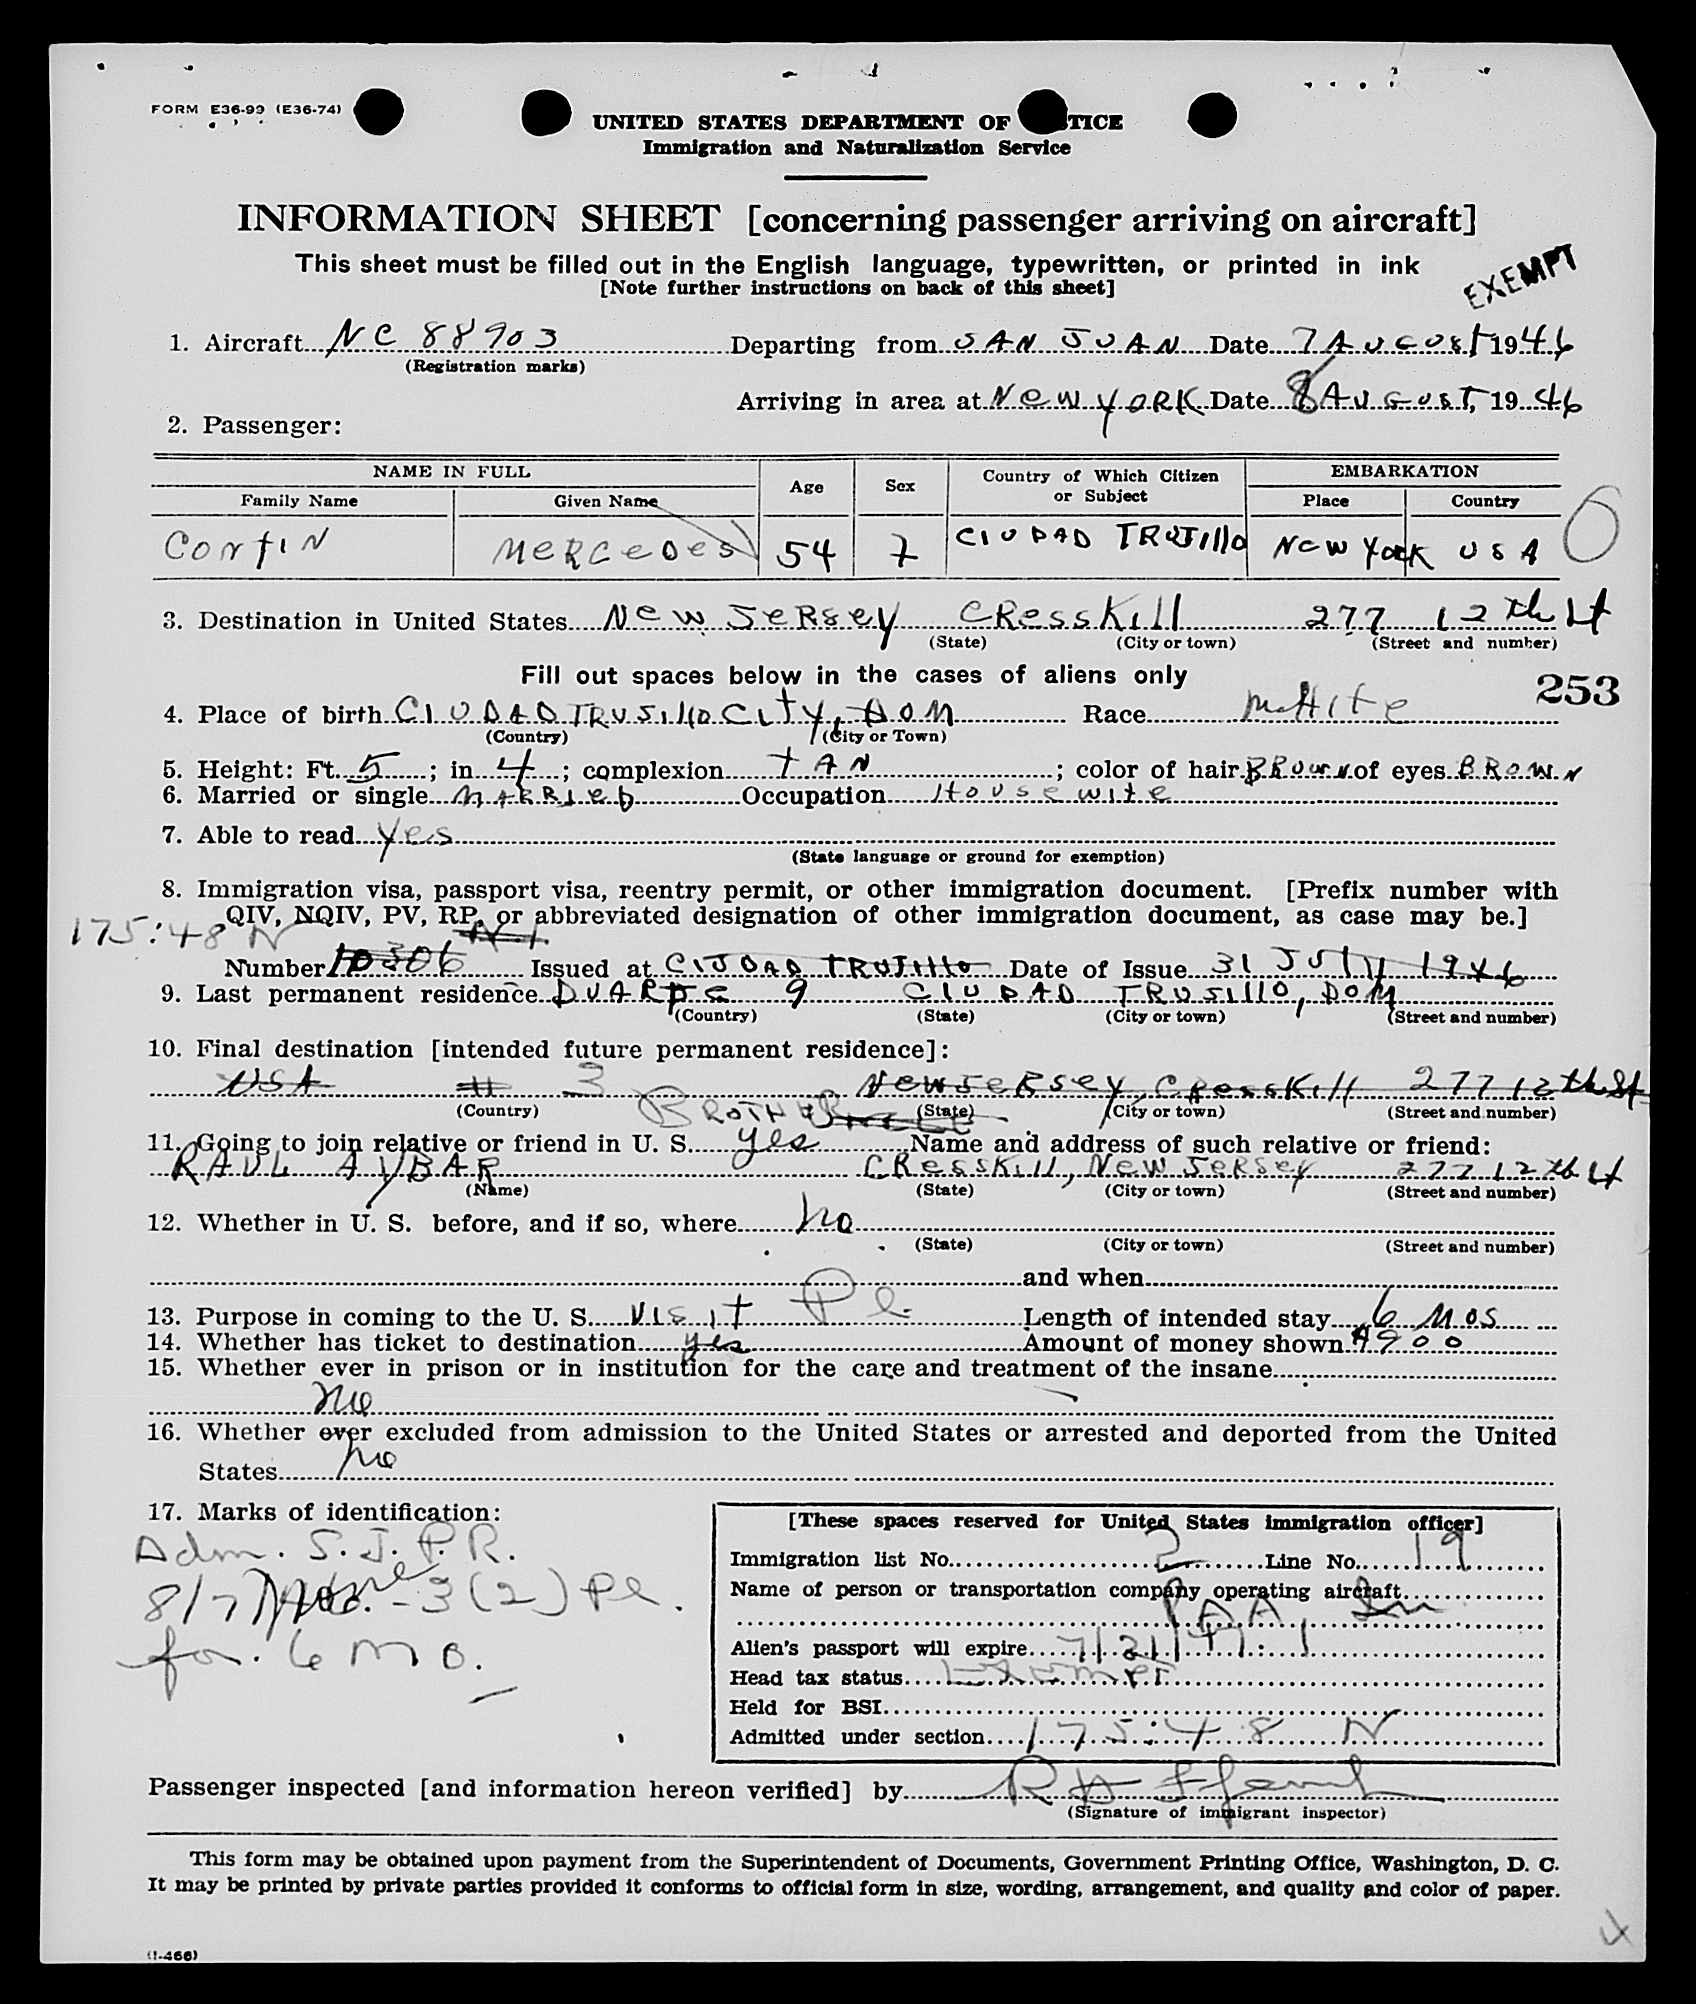 FORM E36-99 (E36-74)
UNITED STATES DEPARTMENT OF TICE
Immigration and Naturalization Service
INFORMATION SHEET [concerning passenger arriving on aircraft]
This sheet must be filled out in the English language, typewritten, or printed in ink
[Note further instructions on back of this sheet]
EXEMPT
1. Aircraft NC 88903 Departing from SAN JUAN Date 7 AUGUST 1946
(Registration marks)
Arriving in area at New YORK Date 8 AUGUST, 1946
2. Passenger:
NAME IN FULL Age Sex Country of Which Citizen or Subject EMBARKATION
Family Name Given Name Place Country
Confin MERCEDES 54 7 CIUDAD TRUJillo New York USA
6
3. Destination in United States New JeRSey CResskill 277 12th St
(State) (City or town) (Street and number)
Fill out spaces below in the cases of aliens only
253
4. Place of birth CIUDAD TRUJillo City, DOM Race White
(Country) (City or Town)
5. Height: Ft. 5; in. 4; complexion TAN; color of hair BROWN of eyes BROWN
6. Married or single MARRIED Occupation Housewife
7. Able to read Yes
(State language or ground for exemption)
8. Immigration visa, passport visa, reentry permit, or other immigration document. [Prefix number with
QIV, NQIV, PV, RP, or abbreviated designation of other immigration document, as case may be.]
175:48 N
Number 10306 Issued at CIUDAD TRUJillo Date of Issue 31 July 1946
9. Last permanent residence DUARTE 9 CIUDAD TRUJILLO, DOM
(Country) (State) (City or town) (Street and number)
10. Final destination [intended future permanent residence]:
USA # 3 New JeRSey, CResskill 277 12th St
(Country) (State) (City or town) (Street and number)
BROTHER
11. Going to join relative or friend in U. S. yes Name and address of such relative or friend:
RAUL AYBAR CResskill, New JeRSey 277 12th St
(Name) (State) (City or town) (Street and number)
12. Whether in U. S. before, and if so, where no
(State) (City or town) (Street and number)
and when
13. Purpose in coming to the U. S. Visit Pl. Length of intended stay 6 MOS
14. Whether has ticket to destination yes Amount of money shown $900
15. Whether ever in prison or in institution for the care and treatment of the insane
no
16. Whether ever excluded from admission to the United States or arrested and deported from the United
States no
17. Marks of identification:
none
Adm. S.J. P.R.
8/7 -3(2) Pl.
for. 6 mo.
[These spaces reserved for United States immigration officer]
Immigration list No. 2 Line No. 19
Name of person or transportation company operating aircraft
PAA,
Alien's passport will expire 7/21/47
Head tax status Exempt
Held for BSI
Admitted under section 175:48 N
Passenger inspected [and information hereon verified] by
(Signature of immigrant inspector)
This form may be obtained upon payment from the Superintendent of Documents, Government Printing Office, Washington, D. C.
It may be printed by private parties provided it conforms to official form in size, wording, arrangement, and quality and color of paper.
(I-466)